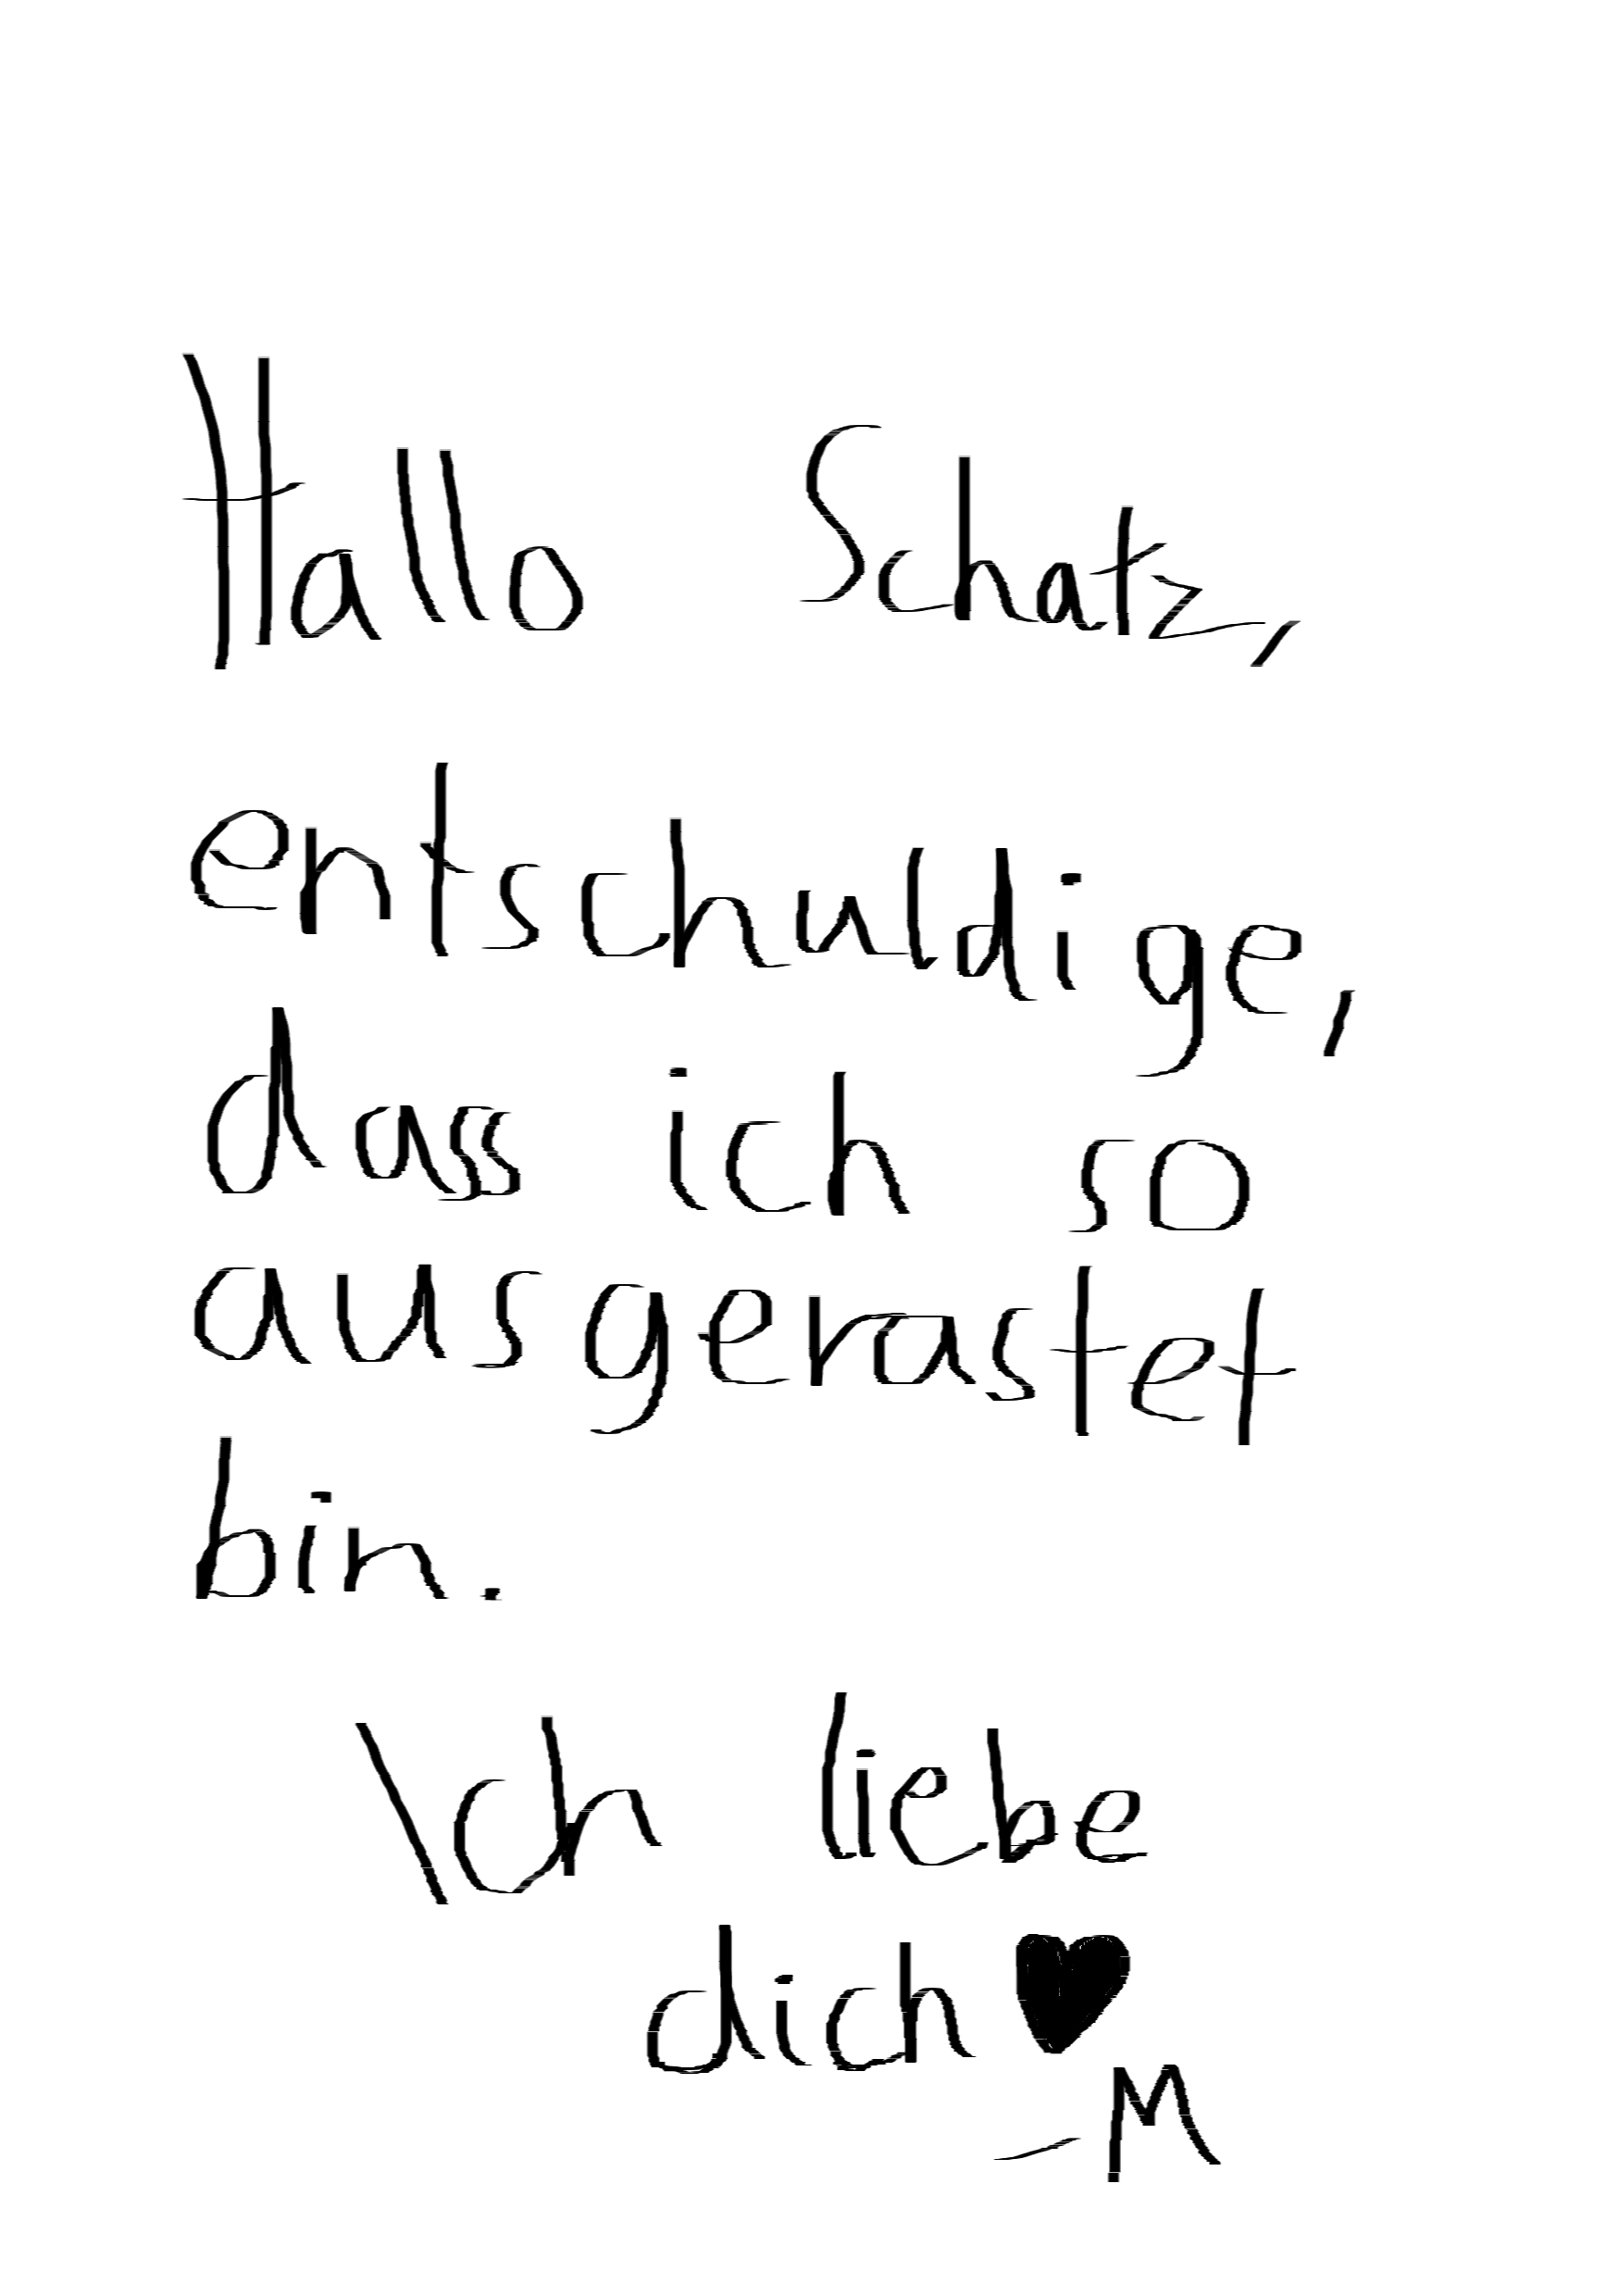 Hallo Schatz,
entschuldige,
dass ich so
ausgerastet
bin.
Ich liebe
dich ♥
- M